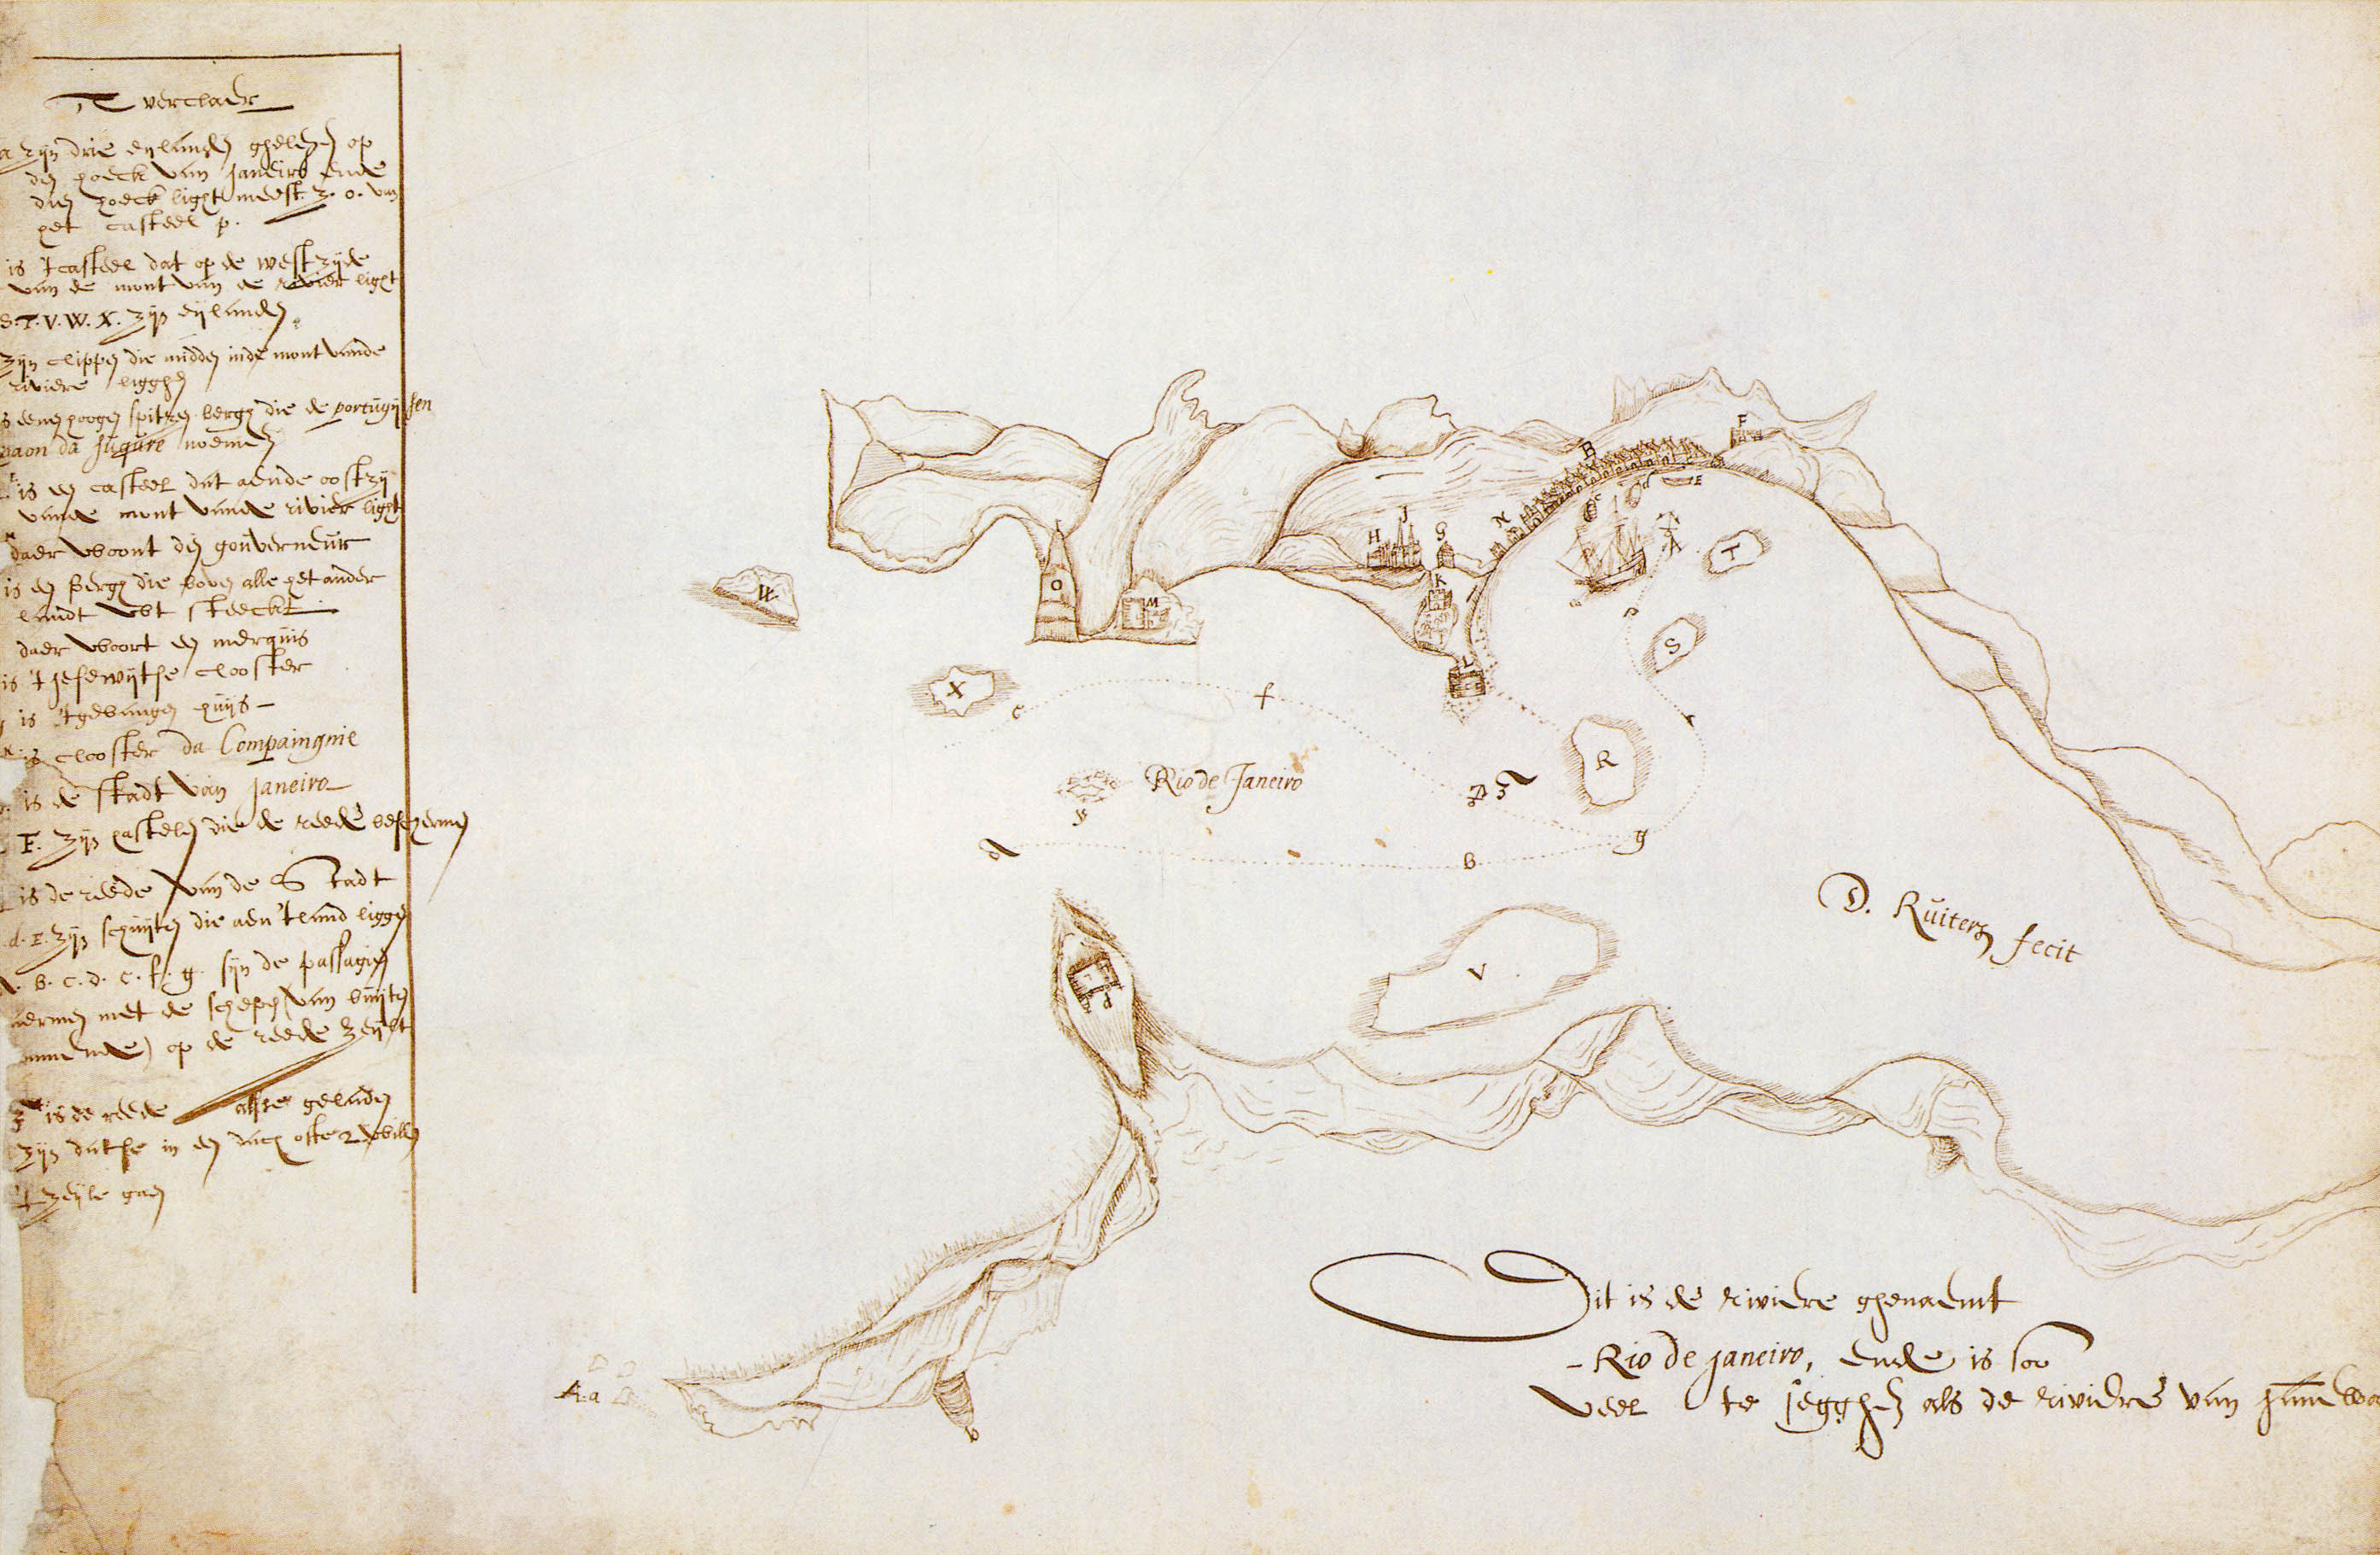 T verclaer
a zijn drie eijlanden ghelegen op
den hoeck van Janeiro ende
dien hoeck light meest. Z. O. van
het casteel p.
is 't casteel dat op de westzijde
van de mont van de rivier light
S. T. V. W. X. zijn eijlanden
zijn clippen die midden inde mont vande
riviere ligghen
is eenen hoogen spitzen bergh die de portugijsen
paon da suqure noemen
is een casteel dat aende oostzij
vande mont vande rivier light
N
daer woont den gouverneur
is een bergh die boven alle het ander
landt uut steeckt
daer woont een merquis
is 't Jesewijtse clooster
is 't gevangen huijs
K. is clooster da Compaingnie
is de stadt van Janeiro
F. zijn castelen die de reede beschermen
is de reede van de Stadt
d. E. zijn schuijten die aen 't land liggen
A. b. c. d. e. f. g. sijn de passagien
met de schepen van buijten
op de reede zeijlt
3 is de reede alsse geladen
zijn datse in een dach ofte 2 willen
't zeijle gaen
F
B
c
d
E
J
H
G
N
A
T
K
W
O
M
P
S
L
X
e
f
r
R
Rio de Janeiro
D 3
y
a
b
g
D. Ruiters fecit
V
Dit is de riviere ghenaemt
Rio de Janeiro, ende is soo
A. a
veel te segghen als de riviere van